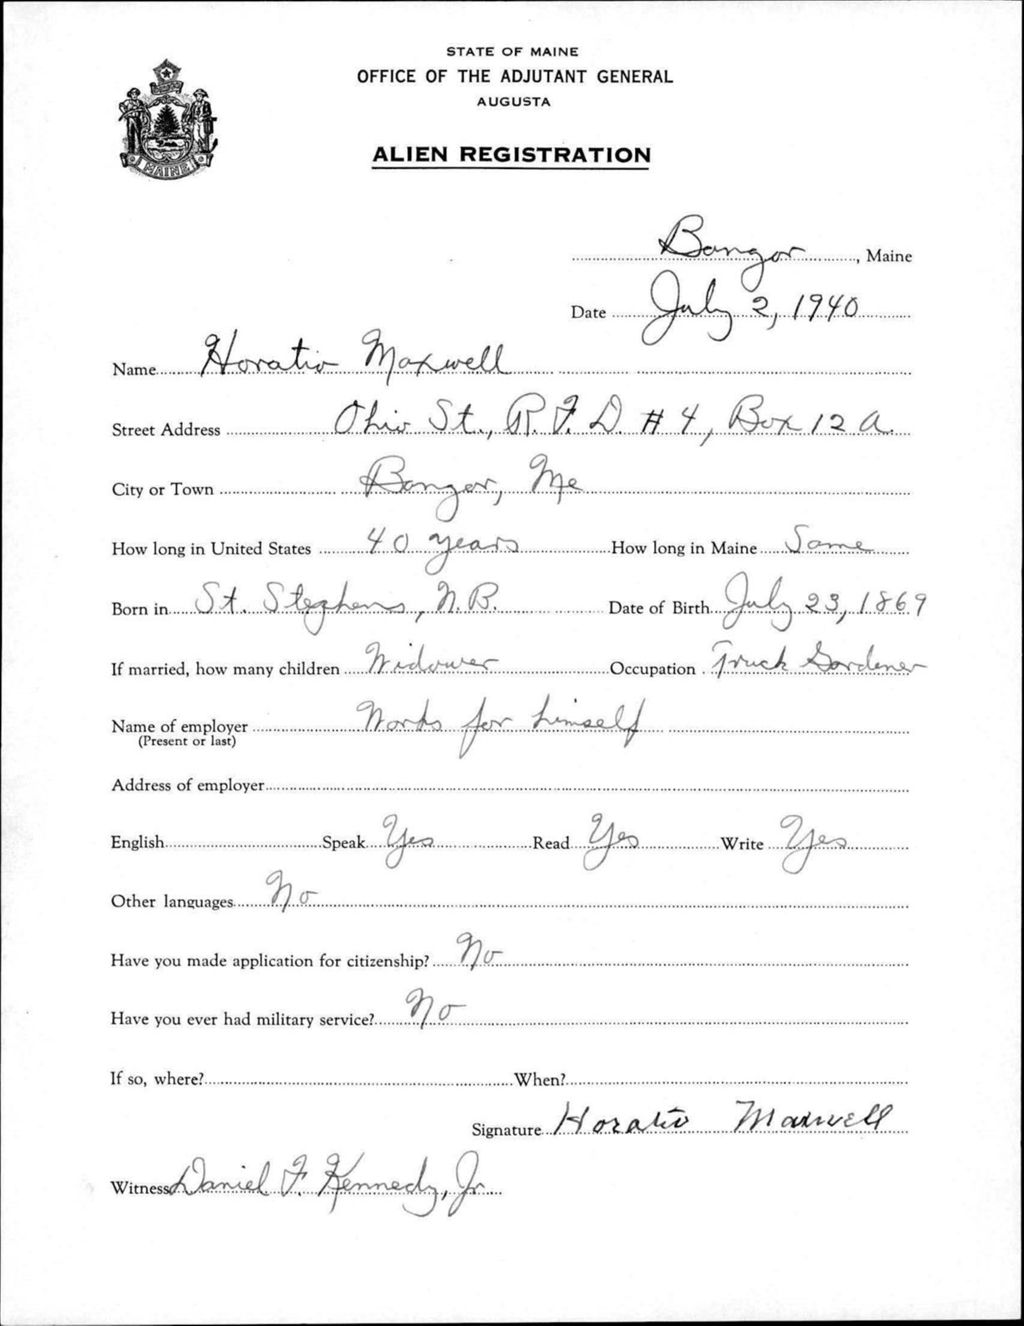 STATE OF MAINE
OFFICE OF THE ADJUTANT GENERAL
AUGUSTA
ALIEN REGISTRATION
MAINE
Bangor, Maine
Date July 2, 1940
Name Horatio Maxwell
Street Address Ohio St., R. F. D. # 4, Box 12 A.
City or Town Bangor, Me
How long in United States 40 years How long in Maine Same
Born in St. Stephens, N. B. Date of Birth July 23, 1869
If married, how many children Widower Occupation Truck Gardener
Name of employer Works for himself
(Present or last)
Address of employer
English Speak Yes Read Yes Write Yes
Other languages No
Have you made application for citizenship? No
Have you ever had military service? No
If so, where? When?
Signature Horatio Maxwell
Witness Daniel F. Kennedy, Jr.